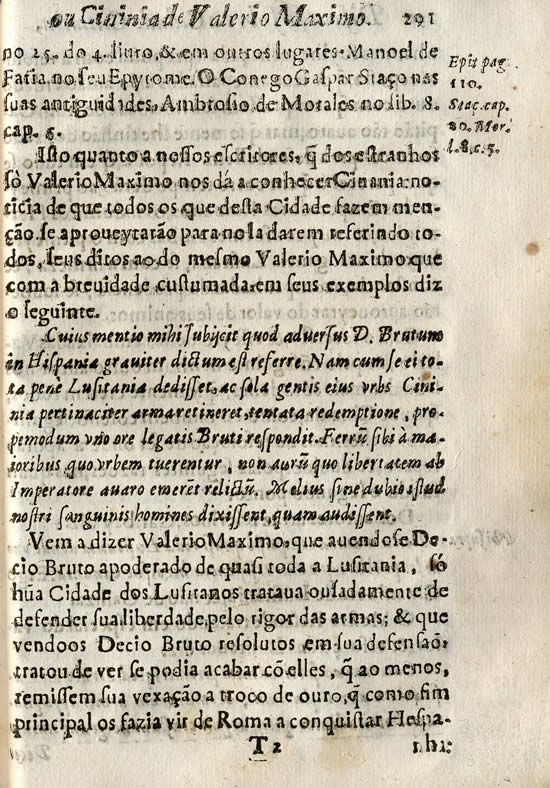 ou Cininia de Valerio Maximo. 291
no 25. do 4. liuro, & em outros lugares. Manoel de
Faria no seu Epytome. O Conego Gaspar Staço nas
suas antiguidades, Ambrosio de Morales no lib. 8.
cap. 5.
Epit pag
110.
Staç. cap.
20. Mor.
l. 8. c. 5.
Isto quanto a nossos escritores, q̃ dos estranhos
sò Valerio Maximo nos dá a conhecer Cinania: no-
ticia de que todos os que desta Cidade fazem men-
ção se aproueytarão para nola darem referindo to-
dos, seus ditos ao do mesmo Valerio Maximo que
com a breuidade custumada em seus exemplos diz
o seguinte.
Cuius mentio mihi subijcit quod aduersus D. Brutum
in Hispania grauiter dictum est referre. Nam cum se ei to-
ta penè Lusitania dedisset, ac sola gentis eius vrbs Cini-
nia pertinaciter arma retineret, tentata redemptione, pro-
pemodum vno ore legatis Bruti respondit. Ferrũ sibi à ma-
ioribus quo vrbem tuerentur, non aurũ quo libertatem ab
Imperatore auaro emerẽt relictũ. Melius sine dubio istud
nostri sanguinis homines dixissent, quam audissent.
Vem a dizer Valerio Maximo, que auendose De-
cio Bruto apoderado de quasi toda a Lusitania, só
hũa Cidade dos Lusitanos trataua ousadamente de
defender sua liberdade pelo rigor das armas; & que
vendoos Decio Bruto resolutos em sua defensaõ,
tratou de ver se podia acabar cõ elles, q̃ ao menos,
remissem sua vexação a troco de ouro, q̃ como fim
principal os fazia vir de Roma a conquistar Hespa-
T 2 nha: